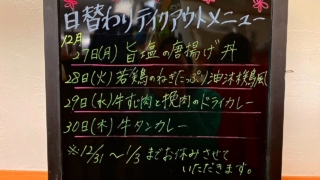 日替わりテイクアウトメニュー
12月
27日(月) 旨塩の唐揚げ丼
28日(火) 若鶏のねぎたっぷり油淋鶏風
29日(水) 牛すじ肉と挽肉のドライカレー
30日(木) 牛タンカレー
※12/31~1/3までお休みさせて
いただきます。